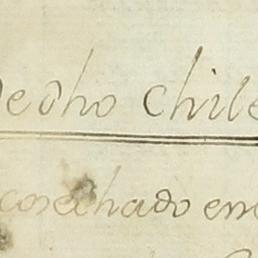 dedho chile
cosechado em